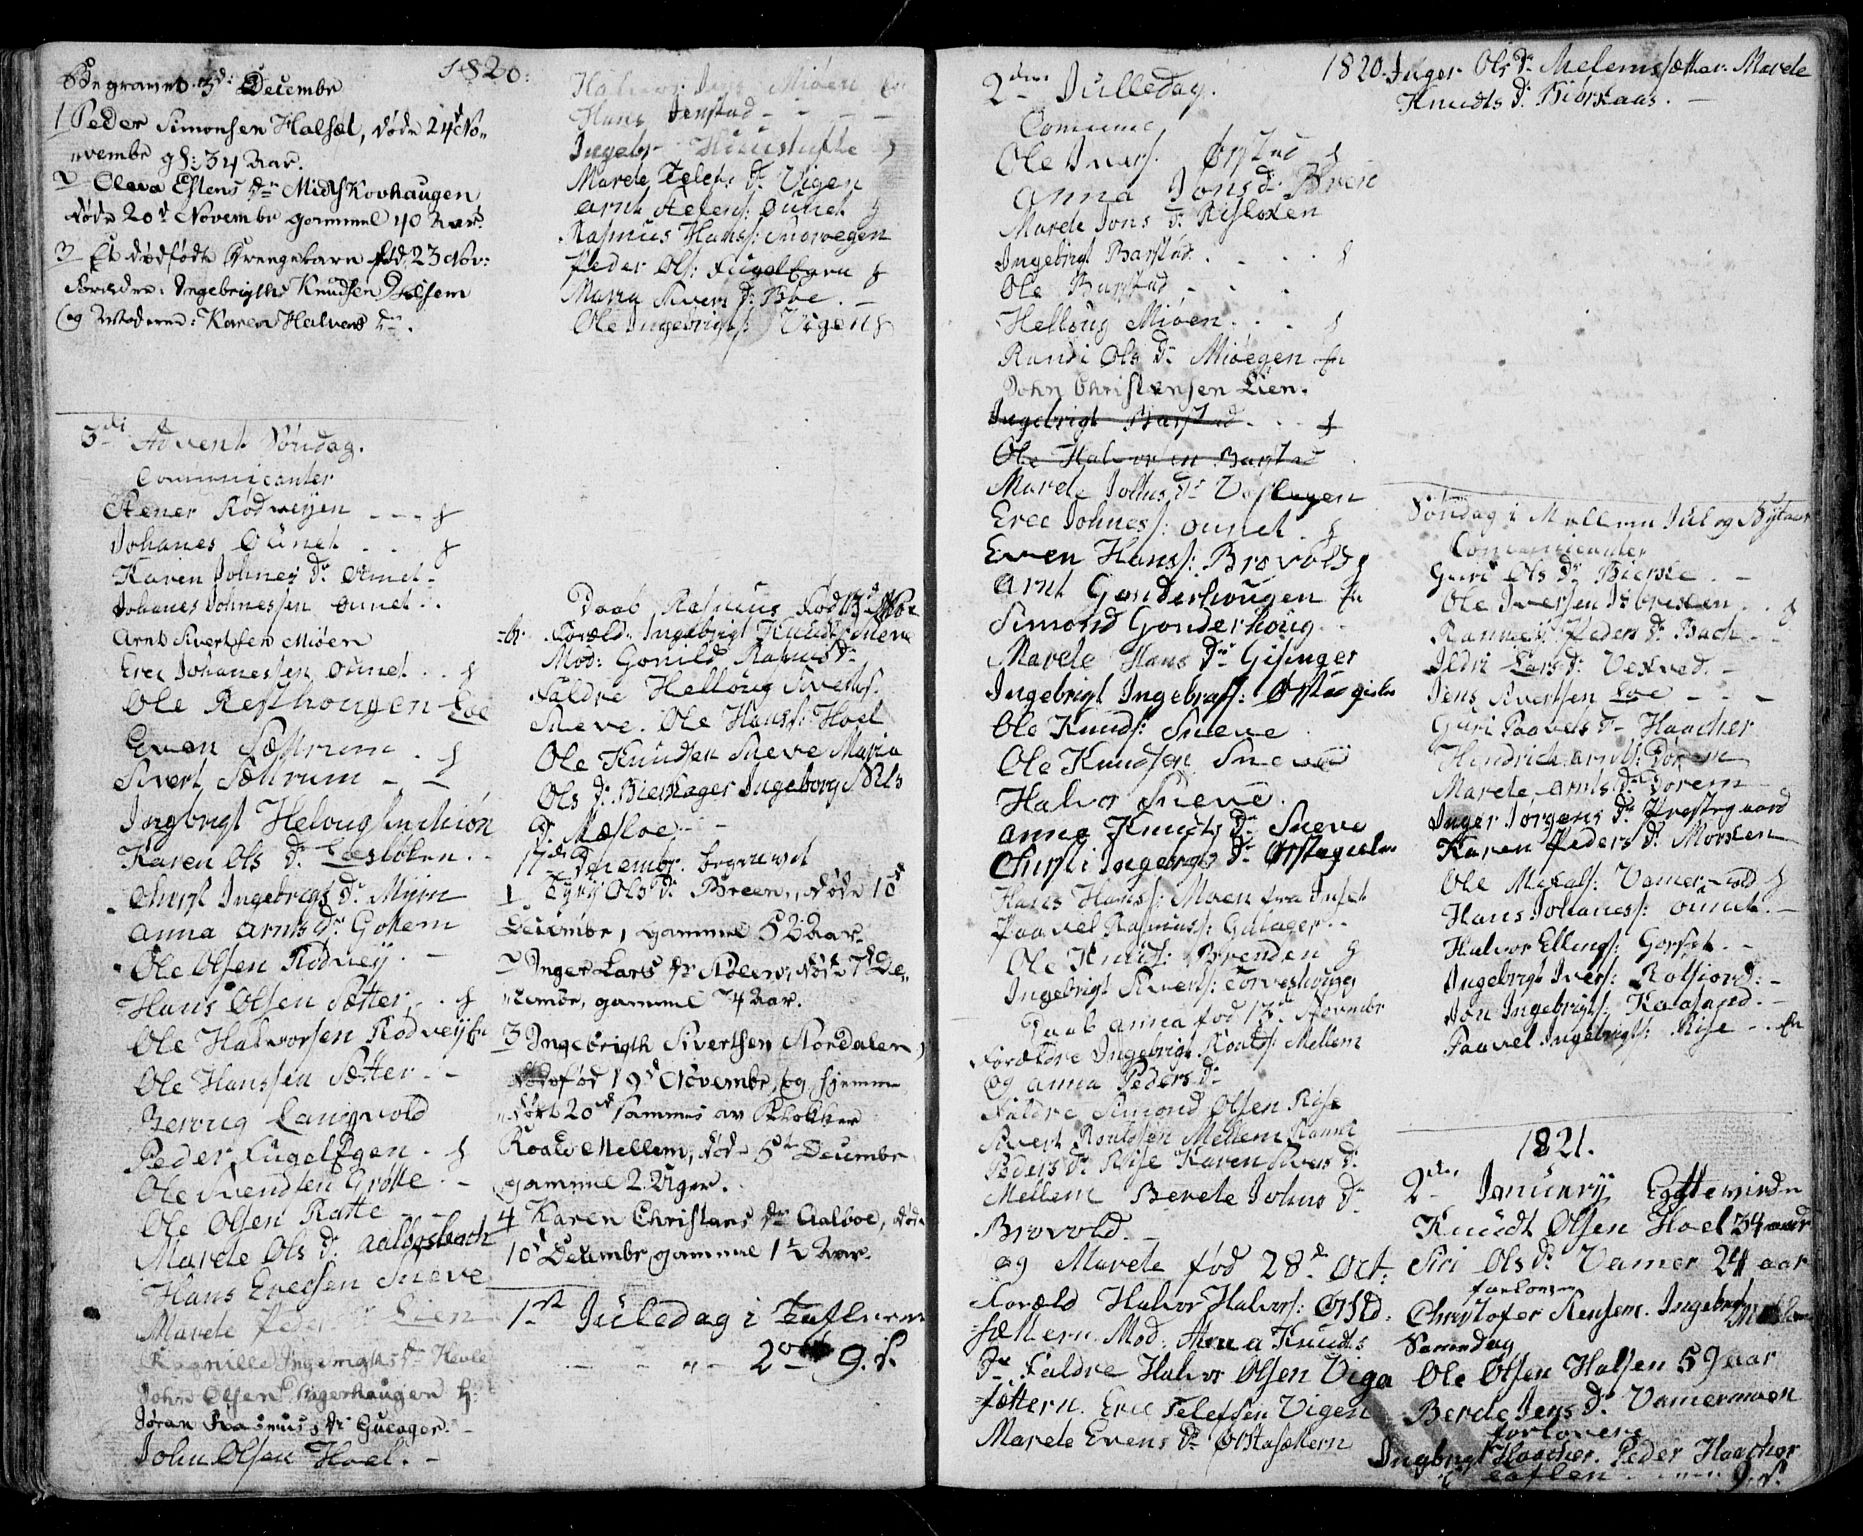 1820.
Begravet 3d: Decembr
1 Peder Simonsen Halsæt, døde 24d No-
vembr gl: 34 Aar.
2 Oleva Estens Dr Midtskovhaugen
døde 20d Novembr gammel 40 Aar.
3 Et dødfødt Drengebarn fød 23 Nov:
Forældre: Ingebrigth Knudsen
og Moderen: Karen Halvors Dr.
3di Advent Søndag.
Communicanter
Stener Rødveyen
Johanes Ounet
Karen Johnes Dr Ounet
Johanes Johnessen Ounet
Arnt Sivertsen Miøen
Eric Johanessen Ounet
Ole Resthougen
Even Sæstrum
Sivert Sætrum
Ingbrigt Helougsen Miøn
Karen Ols Dr Loesloken
Christ Ingebrigts Dr Myrn
Anna Arnts Dr Gossem
Ole Olsen Rødvey
Hans Olsen Sætter
Ole Halvorsen Rødvey
Ole Hanssen Sætter
Herroug Langvold
Peder Fugelsgen
Ole Svendsen Grøtte
Ole Olsen Ratte
Marete Ols Dr Aalbosbach
Hans Ericsen Sneve
Marete Peders Dr Lien
Ragnille Ingebrigts Dr Hevle
John Olsen Tøgerhaugen
Jøran Rasmus Dr Gulager
John Olsen Hoel.
Halvor Miøen
Hans Jenstad
Ingebr
Marete Telefs Dr Vigen
Arnt Ounet
Rasmus Hans: Snorvegen
Peder Ols: Fugelsgen
Maria Sivers Dr Boe
Ole Ingebrigts: Vigen
Daab, Rasmus fød 13d Nov
Foræld: Ingebrigt Knuds: Sneve
Mod: Gonild Rasmus Dr
Faldre Helloug Siverts:
Sneve. Ole Hans: Hoel
Ole Knudsen Sneve Maria
Ols Dr Bierkager Ingeborg Nils
Dr Mæsloe
17d Decembr begravet
1 Eyry Ols Dr Breen, døde 10d
Decembr, gammel 52 Aar.
2 Inger Lars Dr døde 7d De-
cembr, gammel 74 Aar.
3 Ingebrigth Sivertsen Nordalen,
fød 19d Novembr, og hjemme
døbt 20d sammes av Kloker
Roald Mellem, død 5t Decembr
gammel 2 Uger.
4 Karen Christians Dr Aalboe, døde
10d Decembr gammel 1½ Aar.
1st Juledag i Taflen
2 9. s.
1820.
2den Julledag.
Commune
Ole Ivers: Ørstad
Anna Jons Dr Breen
Marete Jons Dr Risloken
Ingebrigt Barstad
Ole Barstad
Helloug Miøen
Randi Ols Dr Miøegen
John Christensen Lien.
Ingebrigt Barstad
Ole Halvorsen Barstad
Marete Johns Dr Voslegen
Erec Johnes: Ounet
Even Hans: Brovold
Arnt Gonderhougen
Simond Gonderhoug
Marete Hans Dr Gisinger
Ingebrigt Ingebrigts:
Ole Knuds: Sneve
Ole Knudsen Sneve
Halvor Sneve
Anne Knuds Dr Sneve
Christi Ingebrigts Dr
Hans Hans: Moen fra Inset
Paavel Rasmus: Gulager
Ole Knuds: Brenden
Ingebrigt Sivers: Torveshoug
Daab Anna fød 13d Novembr
Forældre Ingebrigt Roalds: Mellem
og Anna Peders Dr
Faldre Simond Olsen Rise
Sivert Roaldsen Mellem
Peders Dr Rise Karen Sivers Dr
Mellem Berete Johns Dr
Brovold.
og Marete fød 28d Oct:
Foræld Halvor Halvors:
sættern. Mod: Anna Knuds
Dr Faldre Halvor Olsen Viga
sættern. Eric Telefsen Vigen
Marete Evens Dr Ørstasættern
Inger Ols Dr Melemssætter. Marete
Knudts Dr Biørkaas.
Søndag i Mellem Jul og Nytaar
Communicanter
Guri Ols Dr Bierke
Ole Iversen Isbrekken
Ranney Peders Dr Bach
Ildri Lars Dr Vekved
Jens Sivertsen Loe
Guri Paavels Dr Haacher
Hindrich Arnts: Dørem
Marete Arnts Dr Dørem
Inger Jørgens Dr Prestegaard
Karen Peders Dr Morken
Ole Mikals: Vamervold
Hans Johanes: Ounet
Halvor Ellings: Gorset
Ingebrigt Ivers: Rotsiord
Jon Ingebrigts: Kaasand
Paavel Ingebrigts: Rise
1821.
2den January Egteviede
Knudt Olsen Hoel 34 aar
Siri Ols Dr Vamer 24 aar
forlovere
Christofer Rensem. Ingebrigt
Samme dag
Ole Olsen Halsen 59 aar
Berete Jens Dr Vamermoen
forlovere
Ingebrigt Haacher. Peder Haacher
i Taflen 9. s.